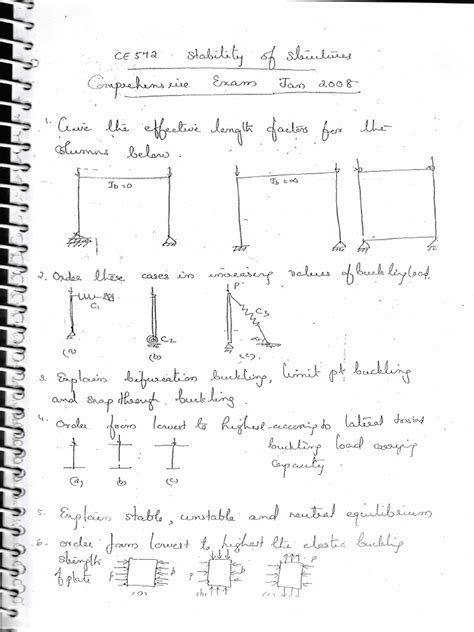 CE 572 Stability of Structures
Comprehensive Exam Jan 2008
1. Give the effective length factors for the
columns below.
Ib=0 Ib=∞
2. Order these cases in increasing values of buckling load.
P
C1 C2 C3
(a) (b) (c)
3. Explain bifurcation buckling, limit pt buckling
and snap through buckling.
4. Order from lowest to highest according to lateral torsional
buckling load carrying
capacity
(a) b (c)
5. Explain stable, unstable and neutral equilibrium
6. order from lowest to highest the elastic buckling
strength
of plate
P
p p p p
(a) (b) (c)